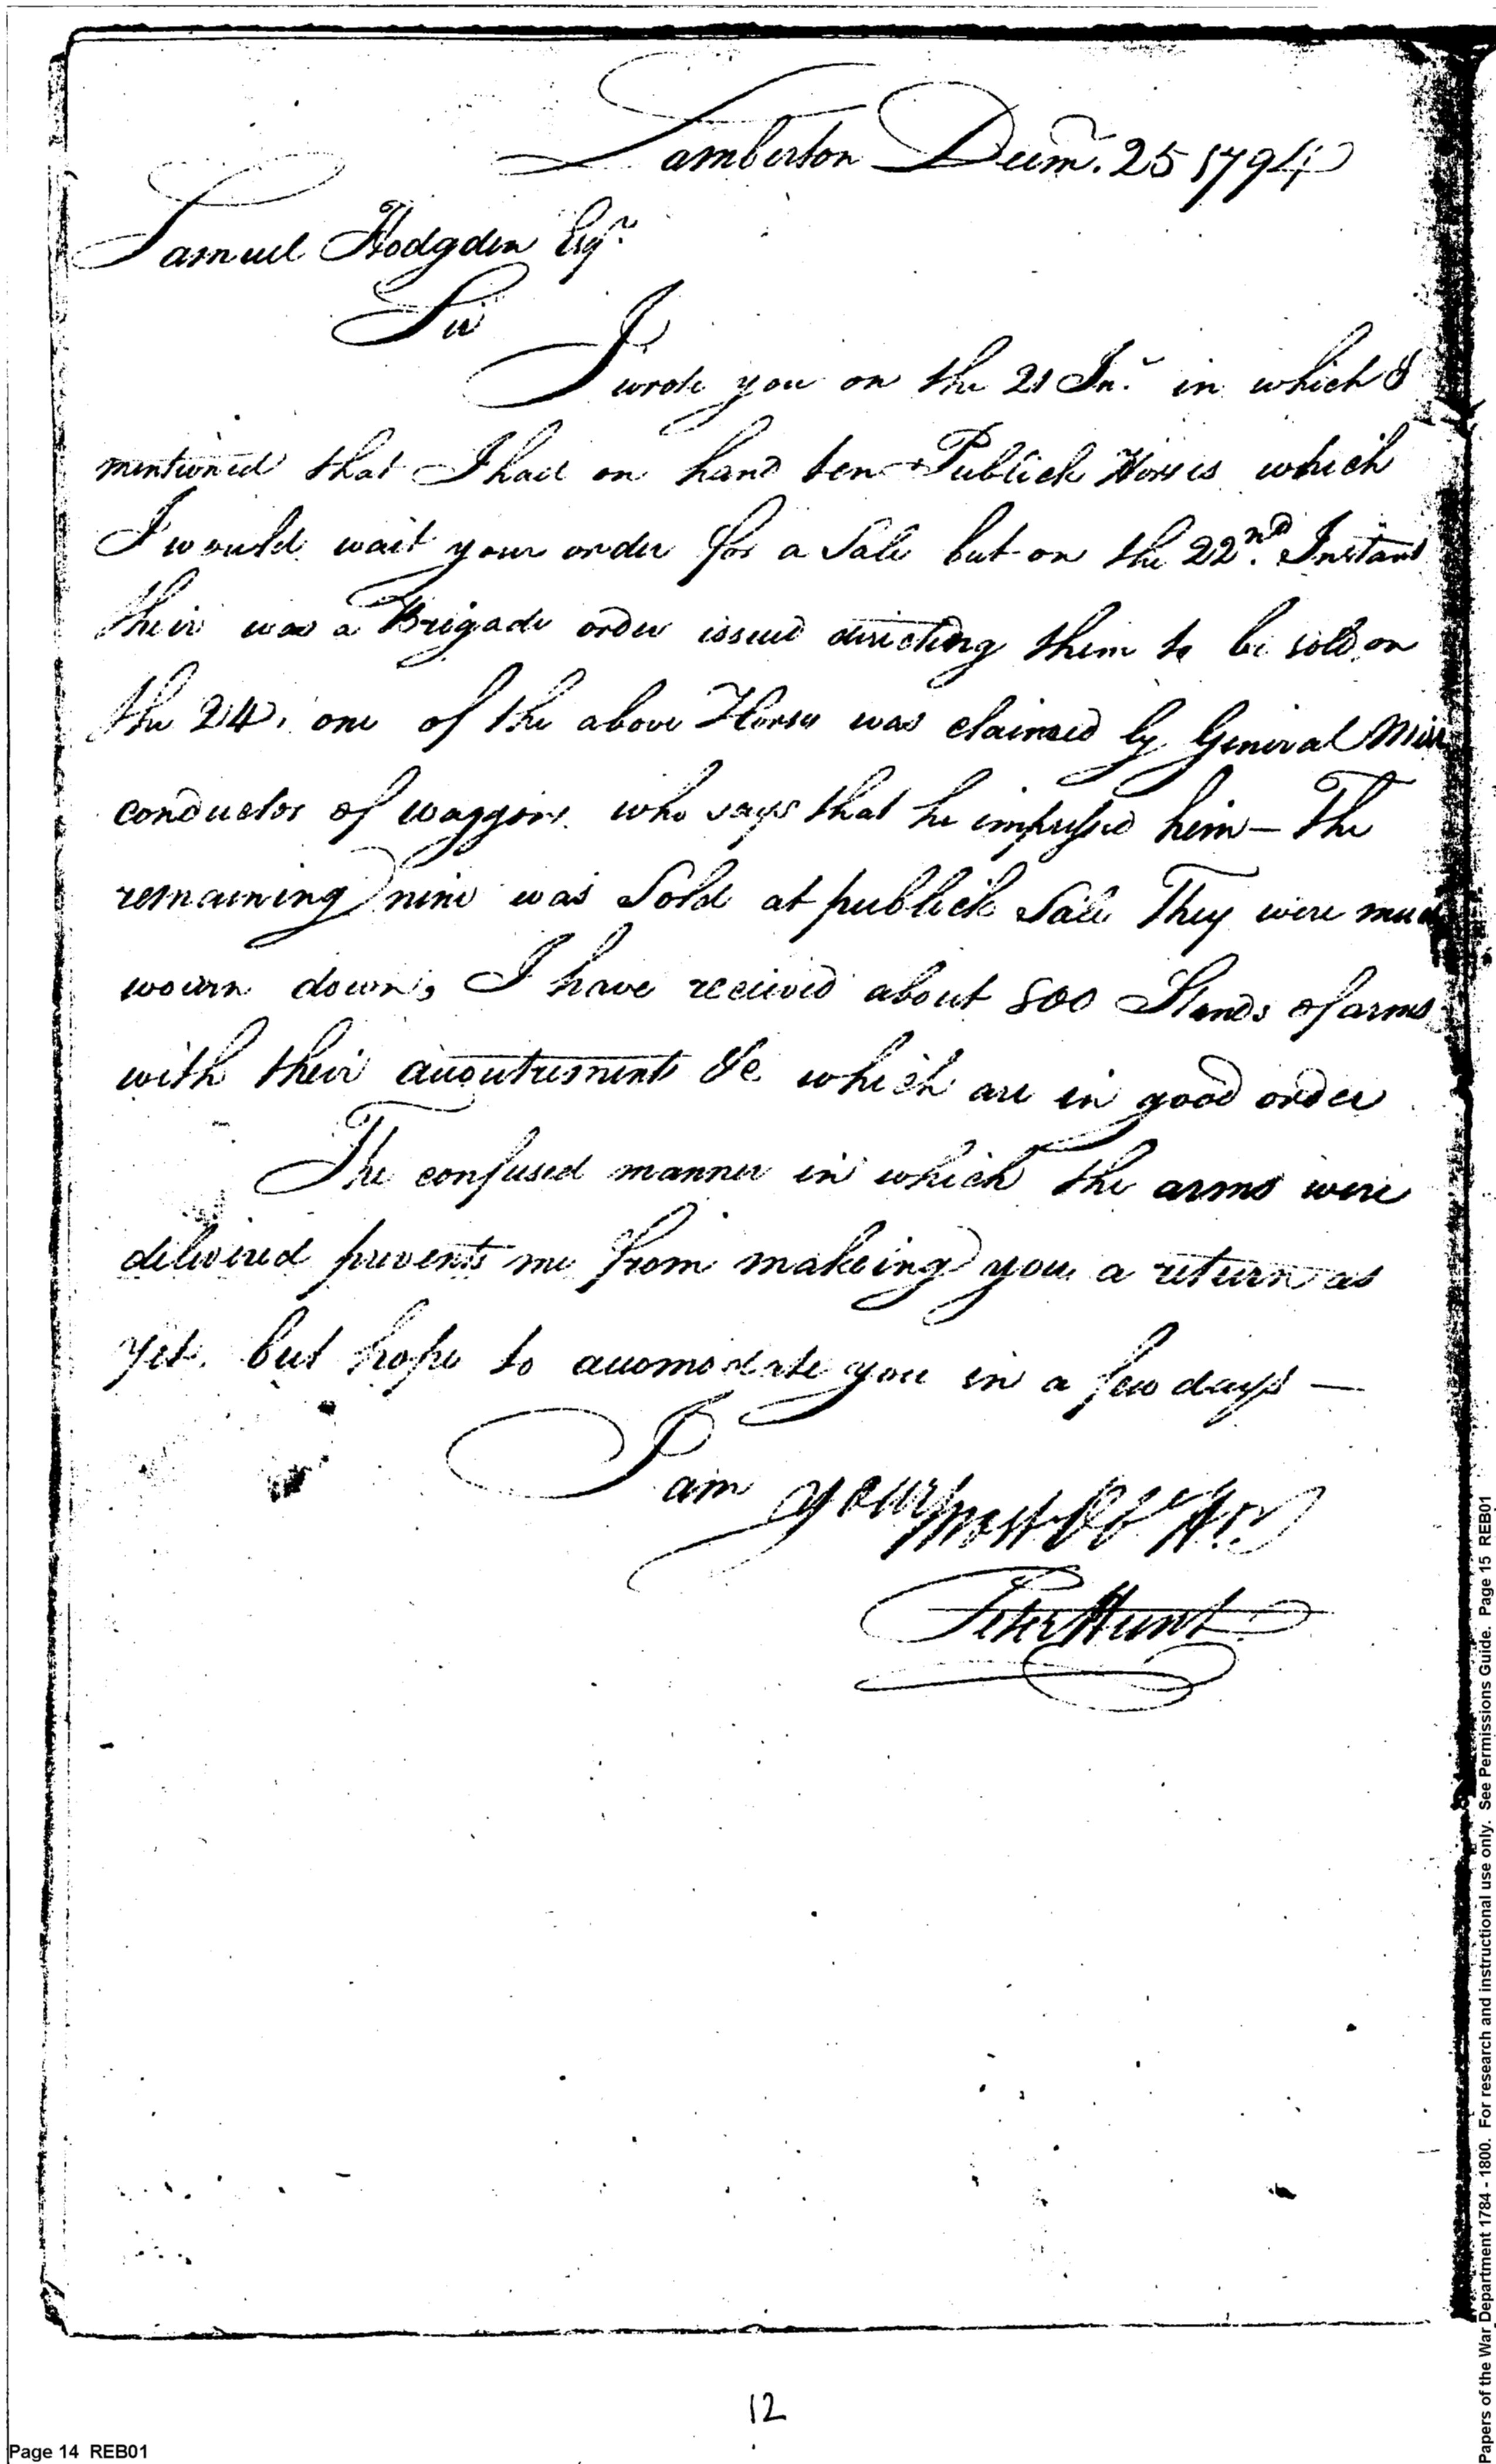 Lamberton Decm. 25 1794
Samuel Hodgden Esqr.
Sir
I wrote you on the 21 In. in which I
mentioned that I had on hand ten Publick Horses which
I would wait your order for a Sale but on the 22nd. Instant
their was a Brigade order issued directing them to be sold on
the 24, one of the above Horses was claimed by General
conductor of waggons who says that he impressed him — The
remaining nine was Sold at publick Sale They were much
wourn down, I have received about 800 Stands of arms
with their accoutrements &c which are in good order
The confused manner in which the arms were
delivered prevents me from makeing you a return as
yet. but hope to accomodate you in a few days —
I am your most Obt Hr
Peter Hunt
12
Page 14 REB01
Papers of the War Department 1784 - 1800. For research and instructional use only. See Permissions Guide. Page 15 REB01